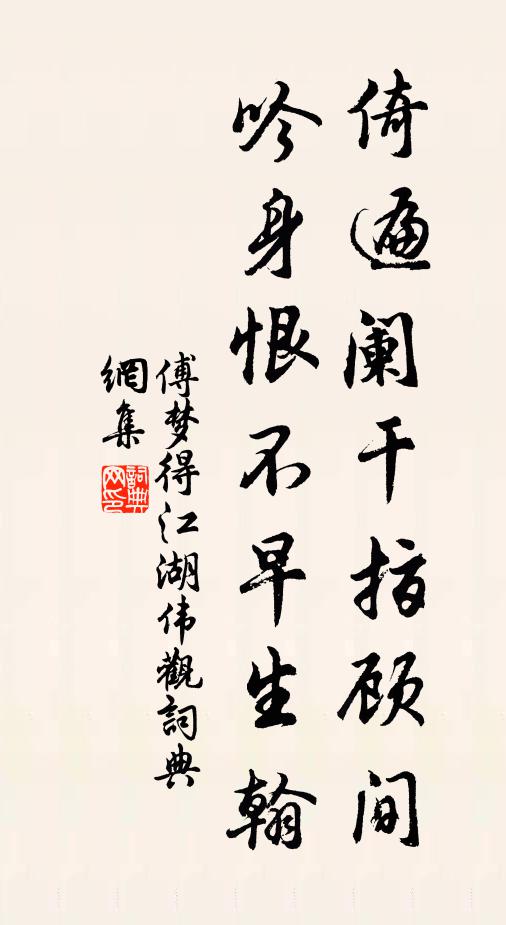 倚遍阑干指顾间
吟身恨不早生翰
傅梦得江湖伟觀詞典
網集
詞典网印